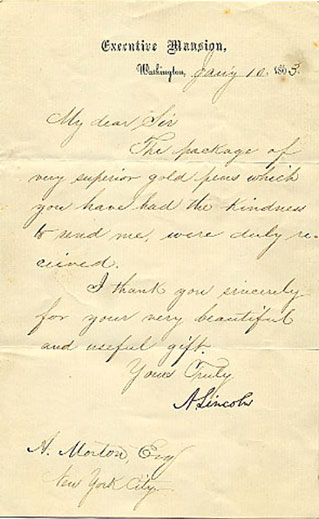 Executive Mansion,
Washington, Jan'y 10, 1863.
My dear Sir
The package of
very superior gold pens which
you have had the kindness
to send me, were duly re-
ceived.
I thank you sincerely
for your very beautiful
and useful gift.
Yours Truly
A Lincoln
A. Morton, Esq
New York City